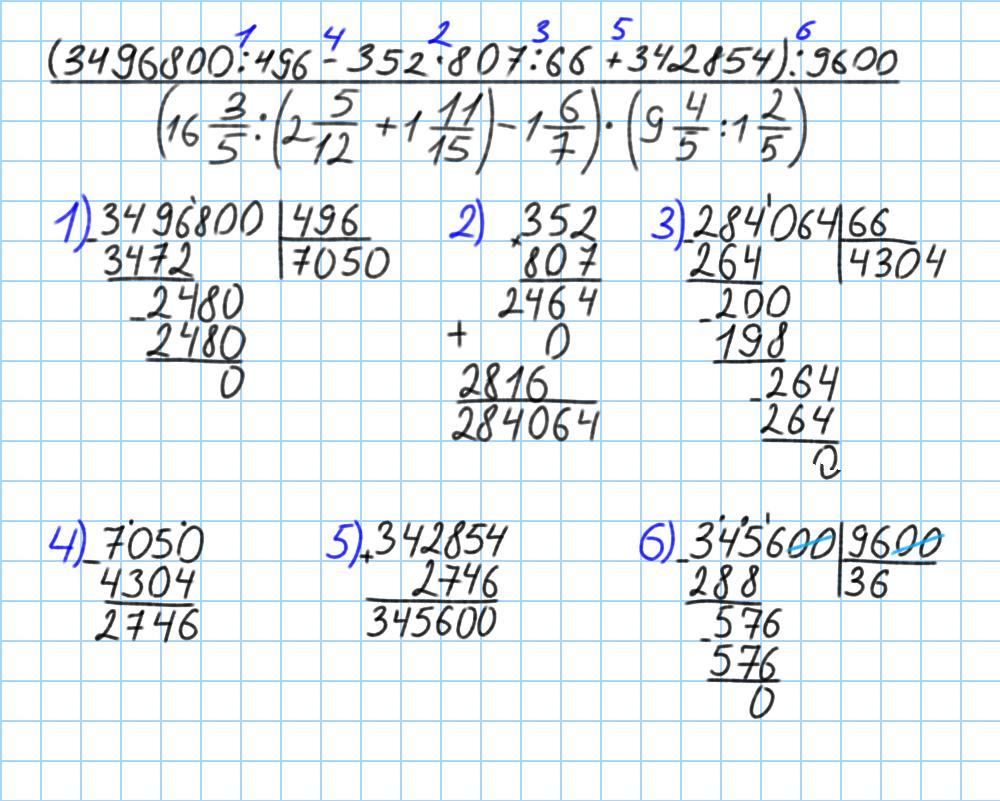 (3496800:496 - 352·807:66 + 342854):9600
1 4 2 3 5 6
(16 3/5 : (2 5/12 + 1 11/15) - 1 6/7) · (9 4/5 : 1 2/5)
1) 3496800 | 496
3472 | 7050
-2480
2480
0
2) 352
× 807
2464
+ 0
2816
284064
3) -284064 | 66
264 | 4304
-200
198
-264
264
0
4) -7050
4304
2746
5) +342854
2746
345600
6) -345600 | 9600
288 | 36
-576
576
0